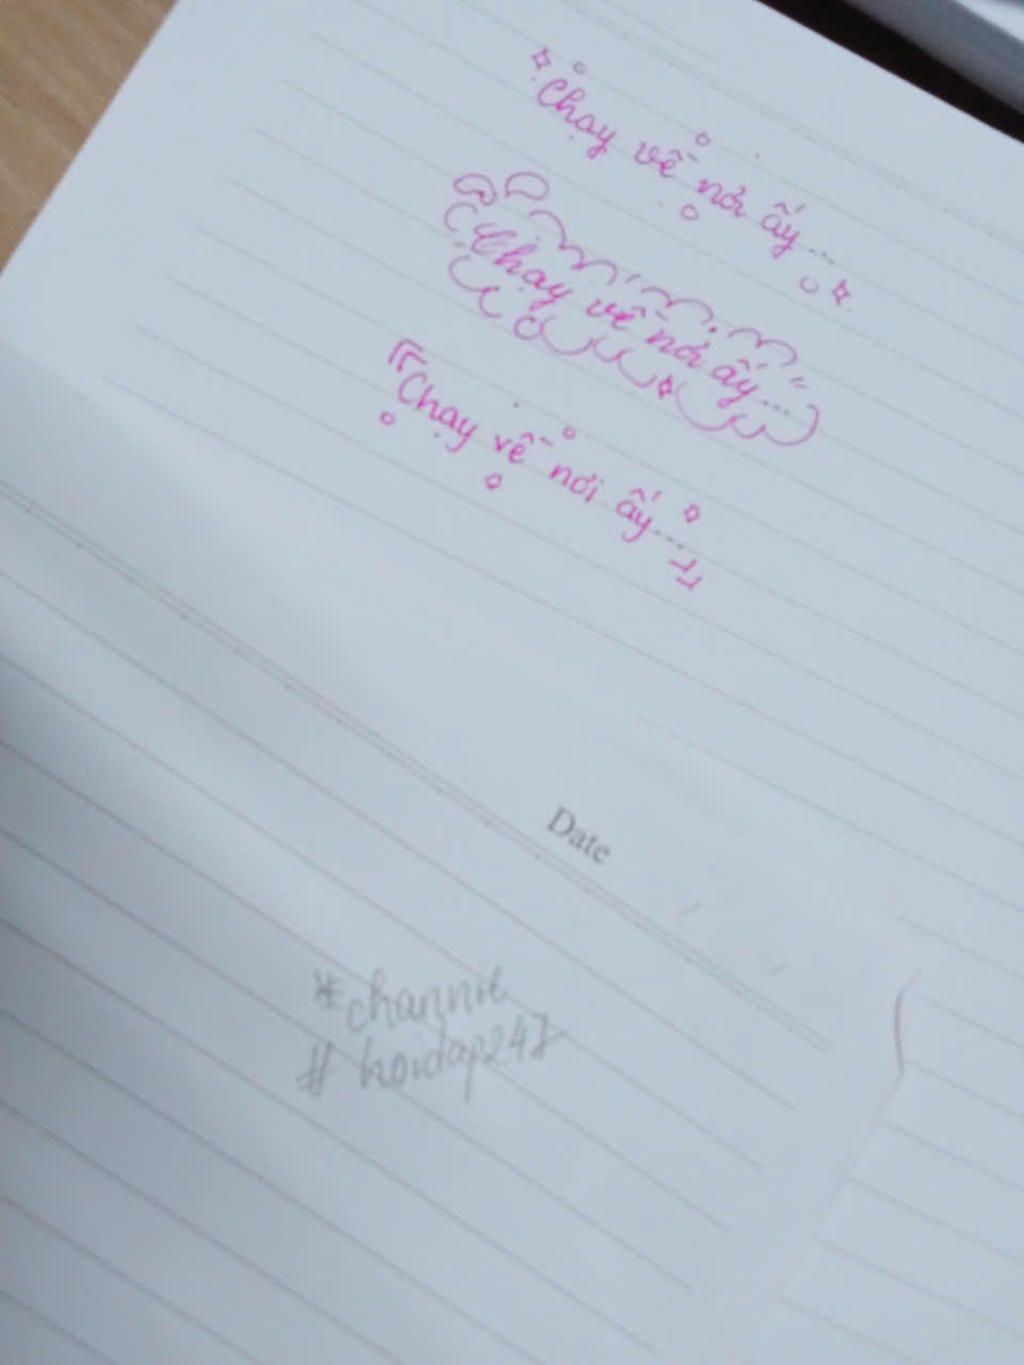 Chạy về nơi ấy...
Chạy về nơi ấy...
Chạy về nơi ấy...
Date
*channie
# hoidap247